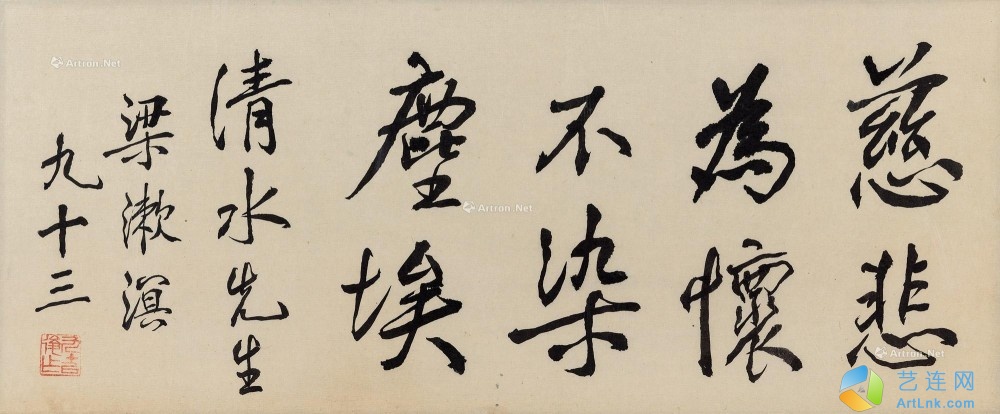 慈悲
為懷
不染
塵埃
清水先生
梁漱溟
九十三
Artron.Net
Artron.Net
Artron.Net
艺连网
ArtLnk.com